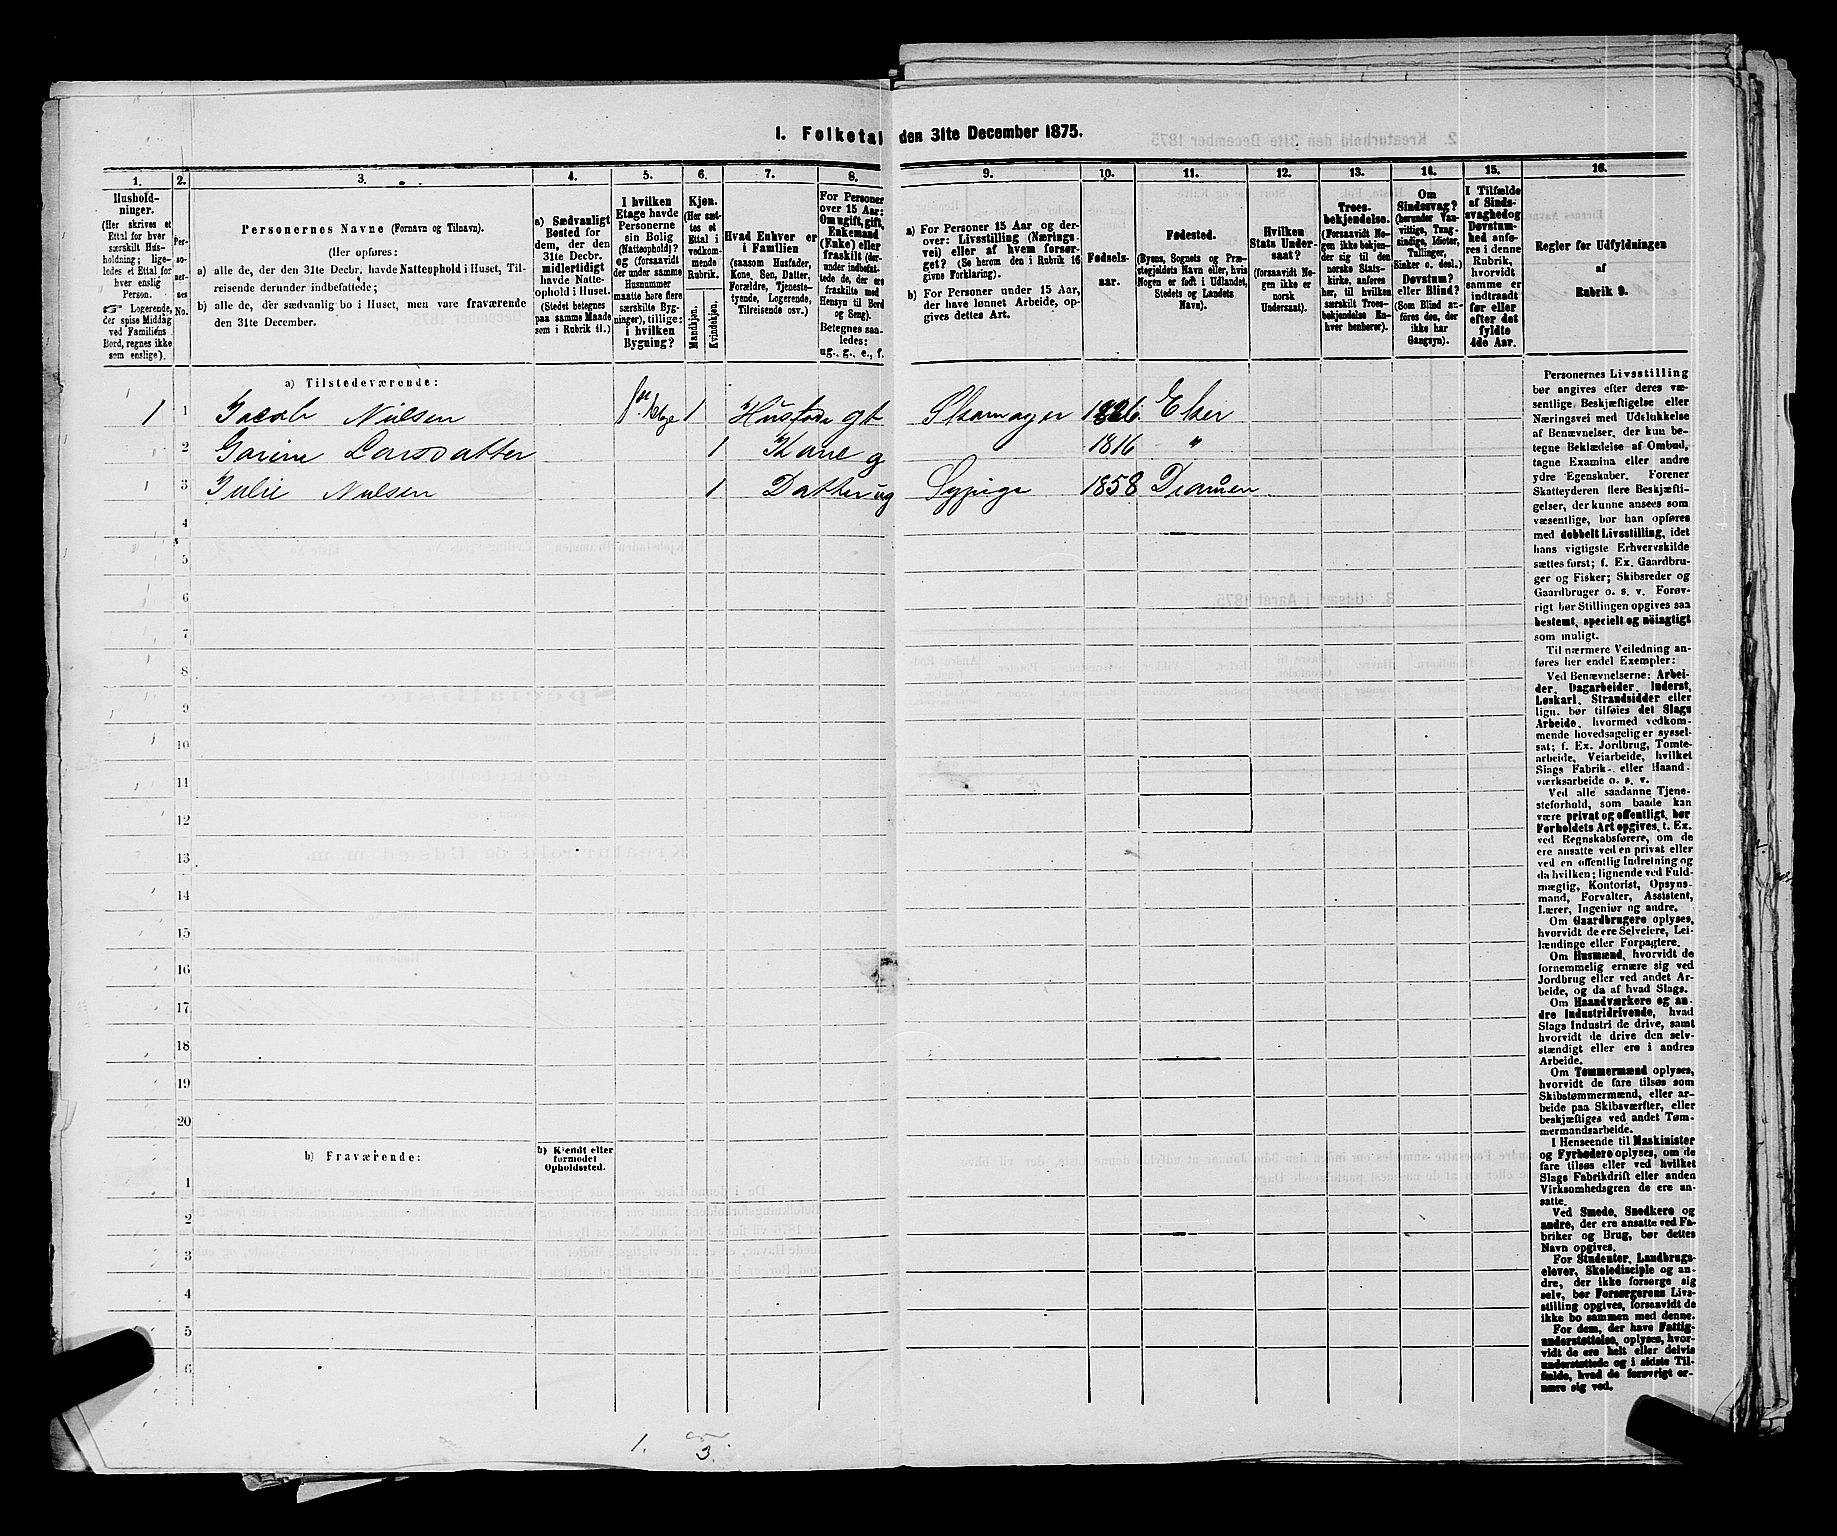 1. Folketal den 31te December 1875.
1. 2. 3. 4. 5. 6. 7. 8. 9. 10. 11. 12. 13. 14. 15. 16.
Hushold-
ninger.
(Her skrives et
Ettal for hver
særskilt Hus-
holdning; lige-
ledes et Ettal for
hver enslig
Person.
☞ Logerende,
der spise Middag
ved Familiens
Bord, regnes ikke
som enslige).
Per-
so-
ner-
nes
No.
Personernes Navne (Fornavn og Tilnavn).
(Her opføres:
a) alle de, der den 31te Decbr. havde Natteophold i Huset, Til-
reisende derunder indbefattede;
b) alle de, der sædvanlig bo i Huset, men vare fraværende
den 31te December.
a) Sædvanligt
Bosted for
dem, der den
31te Decbr.
midlertidigt
havde Natte-
ophold i Huset.
(Stedet betegnes
paa samme Maade
som i Rubrik 11.)
I hvilken
Etage havde
Personerne
sin Bolig
(Natteophold)?
og (forsaavidt
der under samme
Husnummer
maatte høre flere
særskilte Byg-
ninger), tillige:
i hvilken
Bygning?
Kjøn.
(Her sæt-
tes et
Ettal i
vedkom-
mende
Rubrik.
Mandkjøn.
Kvindekjøn.
Hvad Enhver er
i Familien
(saasom Husfader,
Kone, Søn, Datter,
Forældre, Tjeneste-
tyende, Logerende,
Tilreisende osv.)
For Personer
over 15 Aar:
Om ugift, gift,
Enkemand
(Enke) eller
fraskilt (der-
under indbefat-
tede de, der ere
fraskilte med
Hensyn til Bord
og Seng).
Betegnes saa-
ledes:
ug., g., e., f.
a) For Personer 15 Aar og der-
over: Livsstilling (Nærings-
vei) eller af hvem forsør-
get? (Se herom den i Rubrik 16
givne Forklaring).
b) For Personer under 15 Aar,
der have lønnet Arbeide, op-
gives dettes Art.
Fødsels-
aar.
Fødested.
(Byens, Sognets og Præ-
stegjeldets Navn eller, hvis
Nogen er født i Udlandet,
Stedets og Landets
Navn).
Hvilken
Stats Under-
saat?
(forsaavidt No-
gen ikke er
norsk
Undersaat).
Troes-
bekjendelse.
(Forsaavidt No-
gen ikke bekjen-
der sig til den
norske Stats-
kirke, anføres
her, til hvilken
særskilt Troes-
bekjendelse En-
hver henhører).
Om
Sindssvag?
(herunder Van-
vittige, Tung-
sindige, Idioter,
Tullinger,
Sinker o. desl.)
Døvstum?
eller Blind?
(Som Blind an-
føres den, der
ikke har
Gangsyn).
I Tilfælde
af Sinds-
svaghed og
Døvstum-
hed anfø-
res i denne
Rubrik,
hvorvidt
samme er
indtraadt
før eller
efter det
fyldte
4de Aar.
Regler for Udfyldningen
af
Rubrik 9.
a) Tilstedeværende:
1 1 Jacob Nielsen 1ste Etage 1 Husfader gt Skomager 1826 Eker
2 Gorine Larsdatter 1 Kone g 1816 "
3 Julie Nielsen 1 Datter ug Sypige 1858 Dramen
4
5
6
7
8
9
10
11
12
13
14
15
16
17
18
19
20
b) Fraværende:
b) Kjendt eller
formodet
Opholdssted.
1
2
3
4
5
6
Personernes Livsstilling
bør angives efter deres væ-
sentlige Beskjæftigelse eller
Næringsvei med Udelukkelse
af Benævnelser, der kun be-
tegne Beklædelse af Ombud,
tagne Examina eller andre
ydre Egenskaber. Forener
Skatteyderen flere Beskjæfti-
gelser, der kunne ansees som
væsentlige, bør han opføres
med dobbelt Livsstilling, idet
hans vigtigste Erhvervskilde
sættes først; f. Ex. Gaardbru-
ger og Fisker; Skibsreder og
Gaardbruger o. s. v. Forøv-
rigt bør Stillingen opgives saa
bestemt, specielt og nøiagtigt
som muligt.
Til nærmere Veiledning an-
føres her endel Exempler:
Ved Benævnelserne: Arbei-
der, Dagarbeider, Inderst,
Løskarl, Strandsidder eller
lign. bør tilføies det Slags
Arbeide, hvormed vedkom-
mende hovedsagelig er syssel-
sat; f. Ex. Jordbrug, Tomte-
arbeide, Veiarbeide, hvilket
Slags Fabrik- eller Haand-
værksarbeide o. s. v.
Ved alle saadanne Tjene-
steforhold, som baade kan
være privat og offentligt, bør
Forholdets Art opgives, t. Ex.
ved Regnskabsførere, om de
ere ansatte ved en privat eller
ved en offentlig Indretning og
da hvilken; lignende ved Fuld-
mægtig, Kontorist, Opsyns-
mand, Forvalter, Assistent,
Lærer, Ingeniør og andre.
Om Gaardbrugere oplyses,
hvorvidt de ere Selveiere, Lei-
lændinge eller Forpagtere.
Om Husmænd, hvorvidt de
fornemmelig ernære sig ved
Jordbrug eller ved andet Ar-
beide, og da af hvad Slags.
Om Haandværkere og an-
dre Industridrivende, hvad
Slags Industri de drive, samt
hvorvidt de drive den selv-
stændigt eller ere i andres
Arbeide.
Om Tømmermænd oplyses,
hvorvidt de fare tilsøs som
Skibstømmermænd, eller ar-
beide paa Skibsværfter, eller
beskjæftiges ved andet Tøm-
mermandsarbeide.
I Henseende til Maskinister
og Fyrbødere oplyses, om de
fare tilsøs eller ved hvilket
Slags Fabrikdrift eller anden
Virksomhedsgren de ere an-
satte.
Ved Smede, Snedkere og
andre, der ere ansatte ved Fa-
briker og Brug, bør dettes
Navn opgives.
For Studenter, Landbrugs-
elever, Skoledisciple og an-
dre, der ikke forsørge sig
selv, bør Forsørgerens Livs-
stilling opgives, forsaavidt de
ikke bo sammen med denne.
For dem, der have Fattig-
understøttelse, oplyses, hvor-
vidt de ere helt eller delvis
understøttede og i sidste Til-
fælde, hvad de forøvrigt er-
nære sig ved.
1. 3.